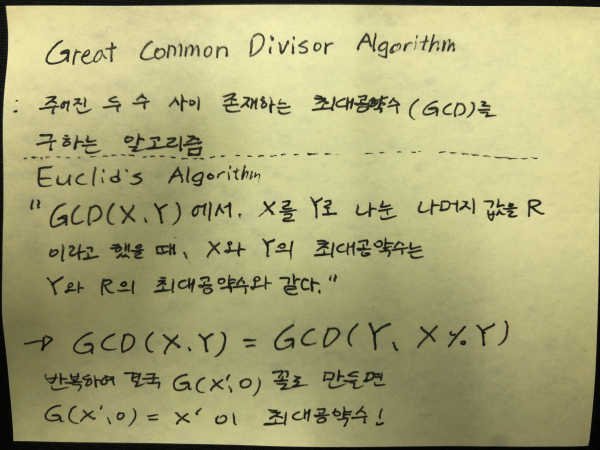 Great Common Divisor Algorithm
: 주어진 두 수 사이 존재하는 최대공약수 (GCD)를
구하는 알고리즘
Euclid's Algorithm
"GCD(X,Y)에서, X를 Y로 나눈 나머지 값을 R
이라고 했을 때, X와 Y의 최대공약수는
Y와 R의 최대공약수와 같다."
→ GCD(X,Y) = GCD(Y, X%Y)
반복하여 결국 G(X',0) 꼴로 만들면
G(X',0) = X' 이 최대공약수!